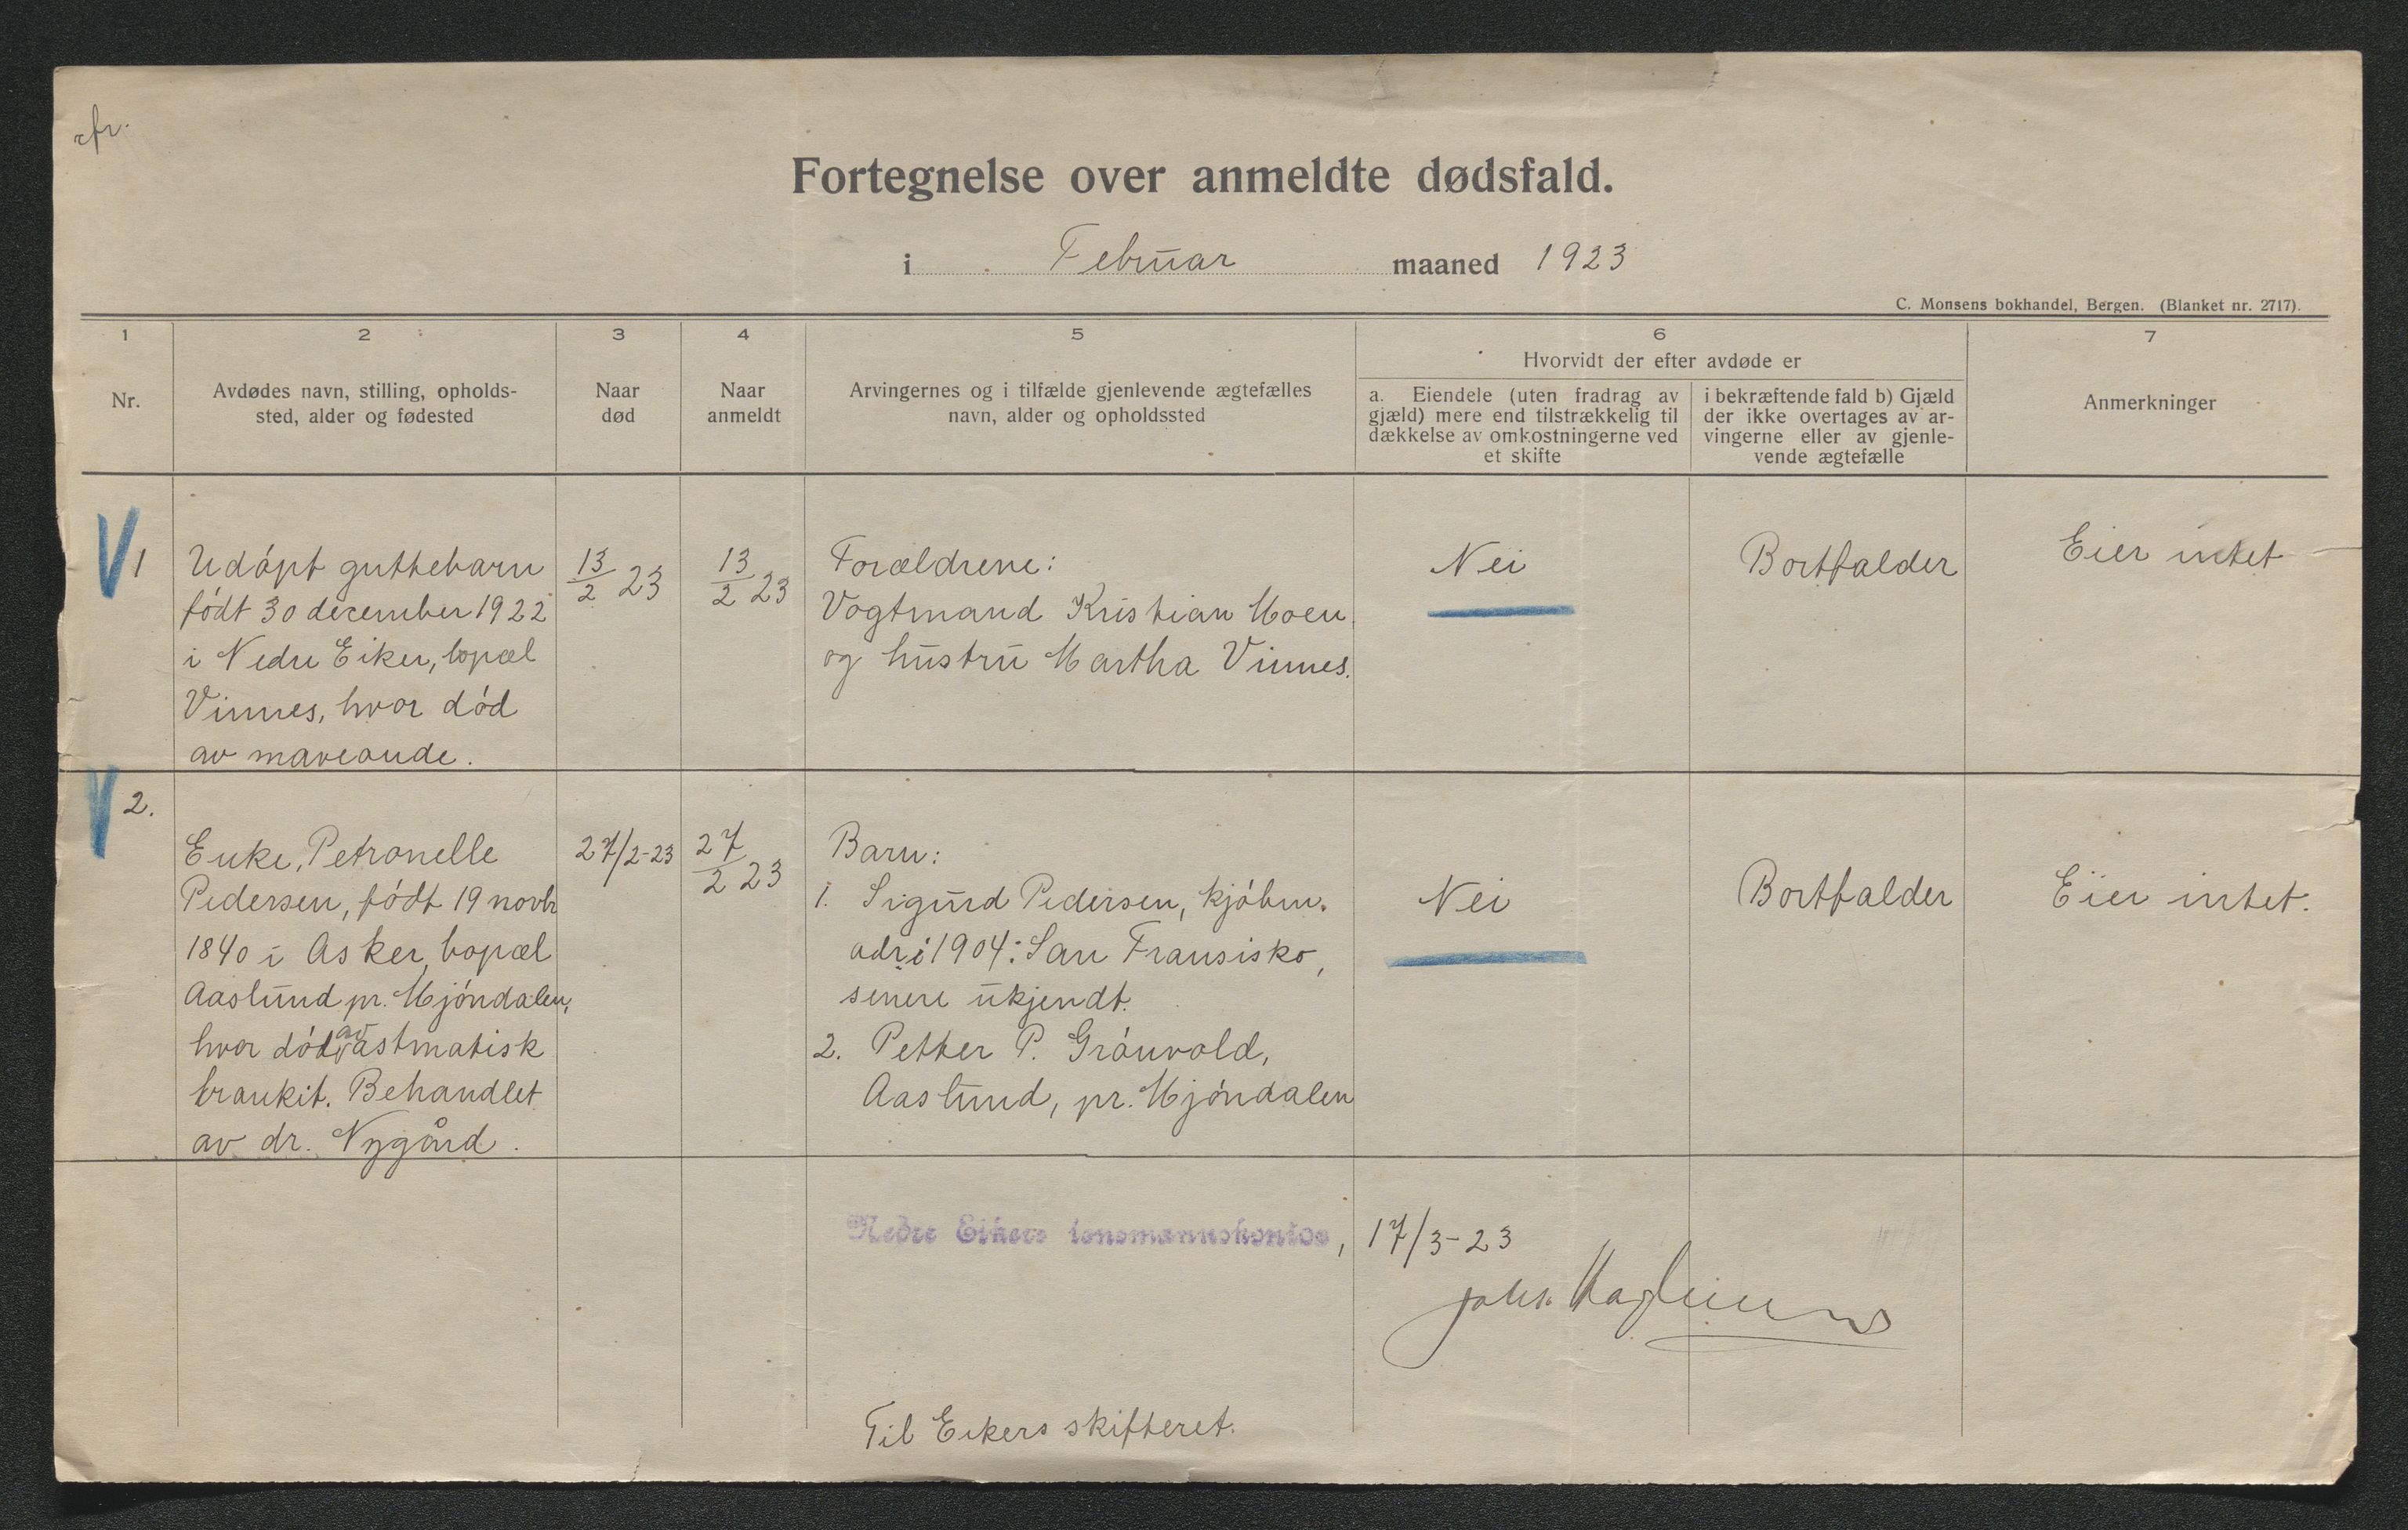 cfr.
Fortegnelse over anmeldte dødsfald.
i Februar maaned 1923
C. Monsens bokhandel, Bergen. (Blanket nr. 2717).
1
2
3
4
5
6
7
Nr.
Avdødes navn, stilling, opholds-
sted, alder og fødested
Naar
død
Naar
anmeldt
Arvingernes og i tilfælde gjenlevende ægtefælles
navn, alder og opholdssted
Hvorvidt der efter avdøde er
a. Eiendele (uten fradrag av
gjæld) mere end tilstrækkelig til
dækkelse av omkostningerne ved
et skifte
i bekræftende fald b) Gjæld
der ikke overtages av ar-
vingerne eller av gjenle-
vende ægtefælle
Anmerkninger
V 1
Udøpt guttebarn
født 30 december 1922
i Nedre Eiker, bopæl
Vinnes, hvor død
av maveonde.
13/2 23
13/2 23
Forældrene:
Vogtmand Kristian Moen
og hustru Martha Vinnes.
Nei
Bortfalder
Eier intet
V 2.
Enke, Petronelle
Pedersen, født 19 novbr
1840 i Asker, bopæl
Aaslund pr. Mjøndalen,
hvor død av astmatisk
bronkit. Behandlet
av dr. Nygård.
27/2-23
27/2 23
Barn:
1. Sigurd Pedersen, kjøbm.
adr. i 1904: San Fransisko,
senere ukjendt.
2. Petter P. Grønvold,
Aaslund, pr. Mjøndalen
Nei
Bortfalder
Eier intet.
Nedre Eikers lensmannskontor, 17/3-23
Til Eikers skifteret.